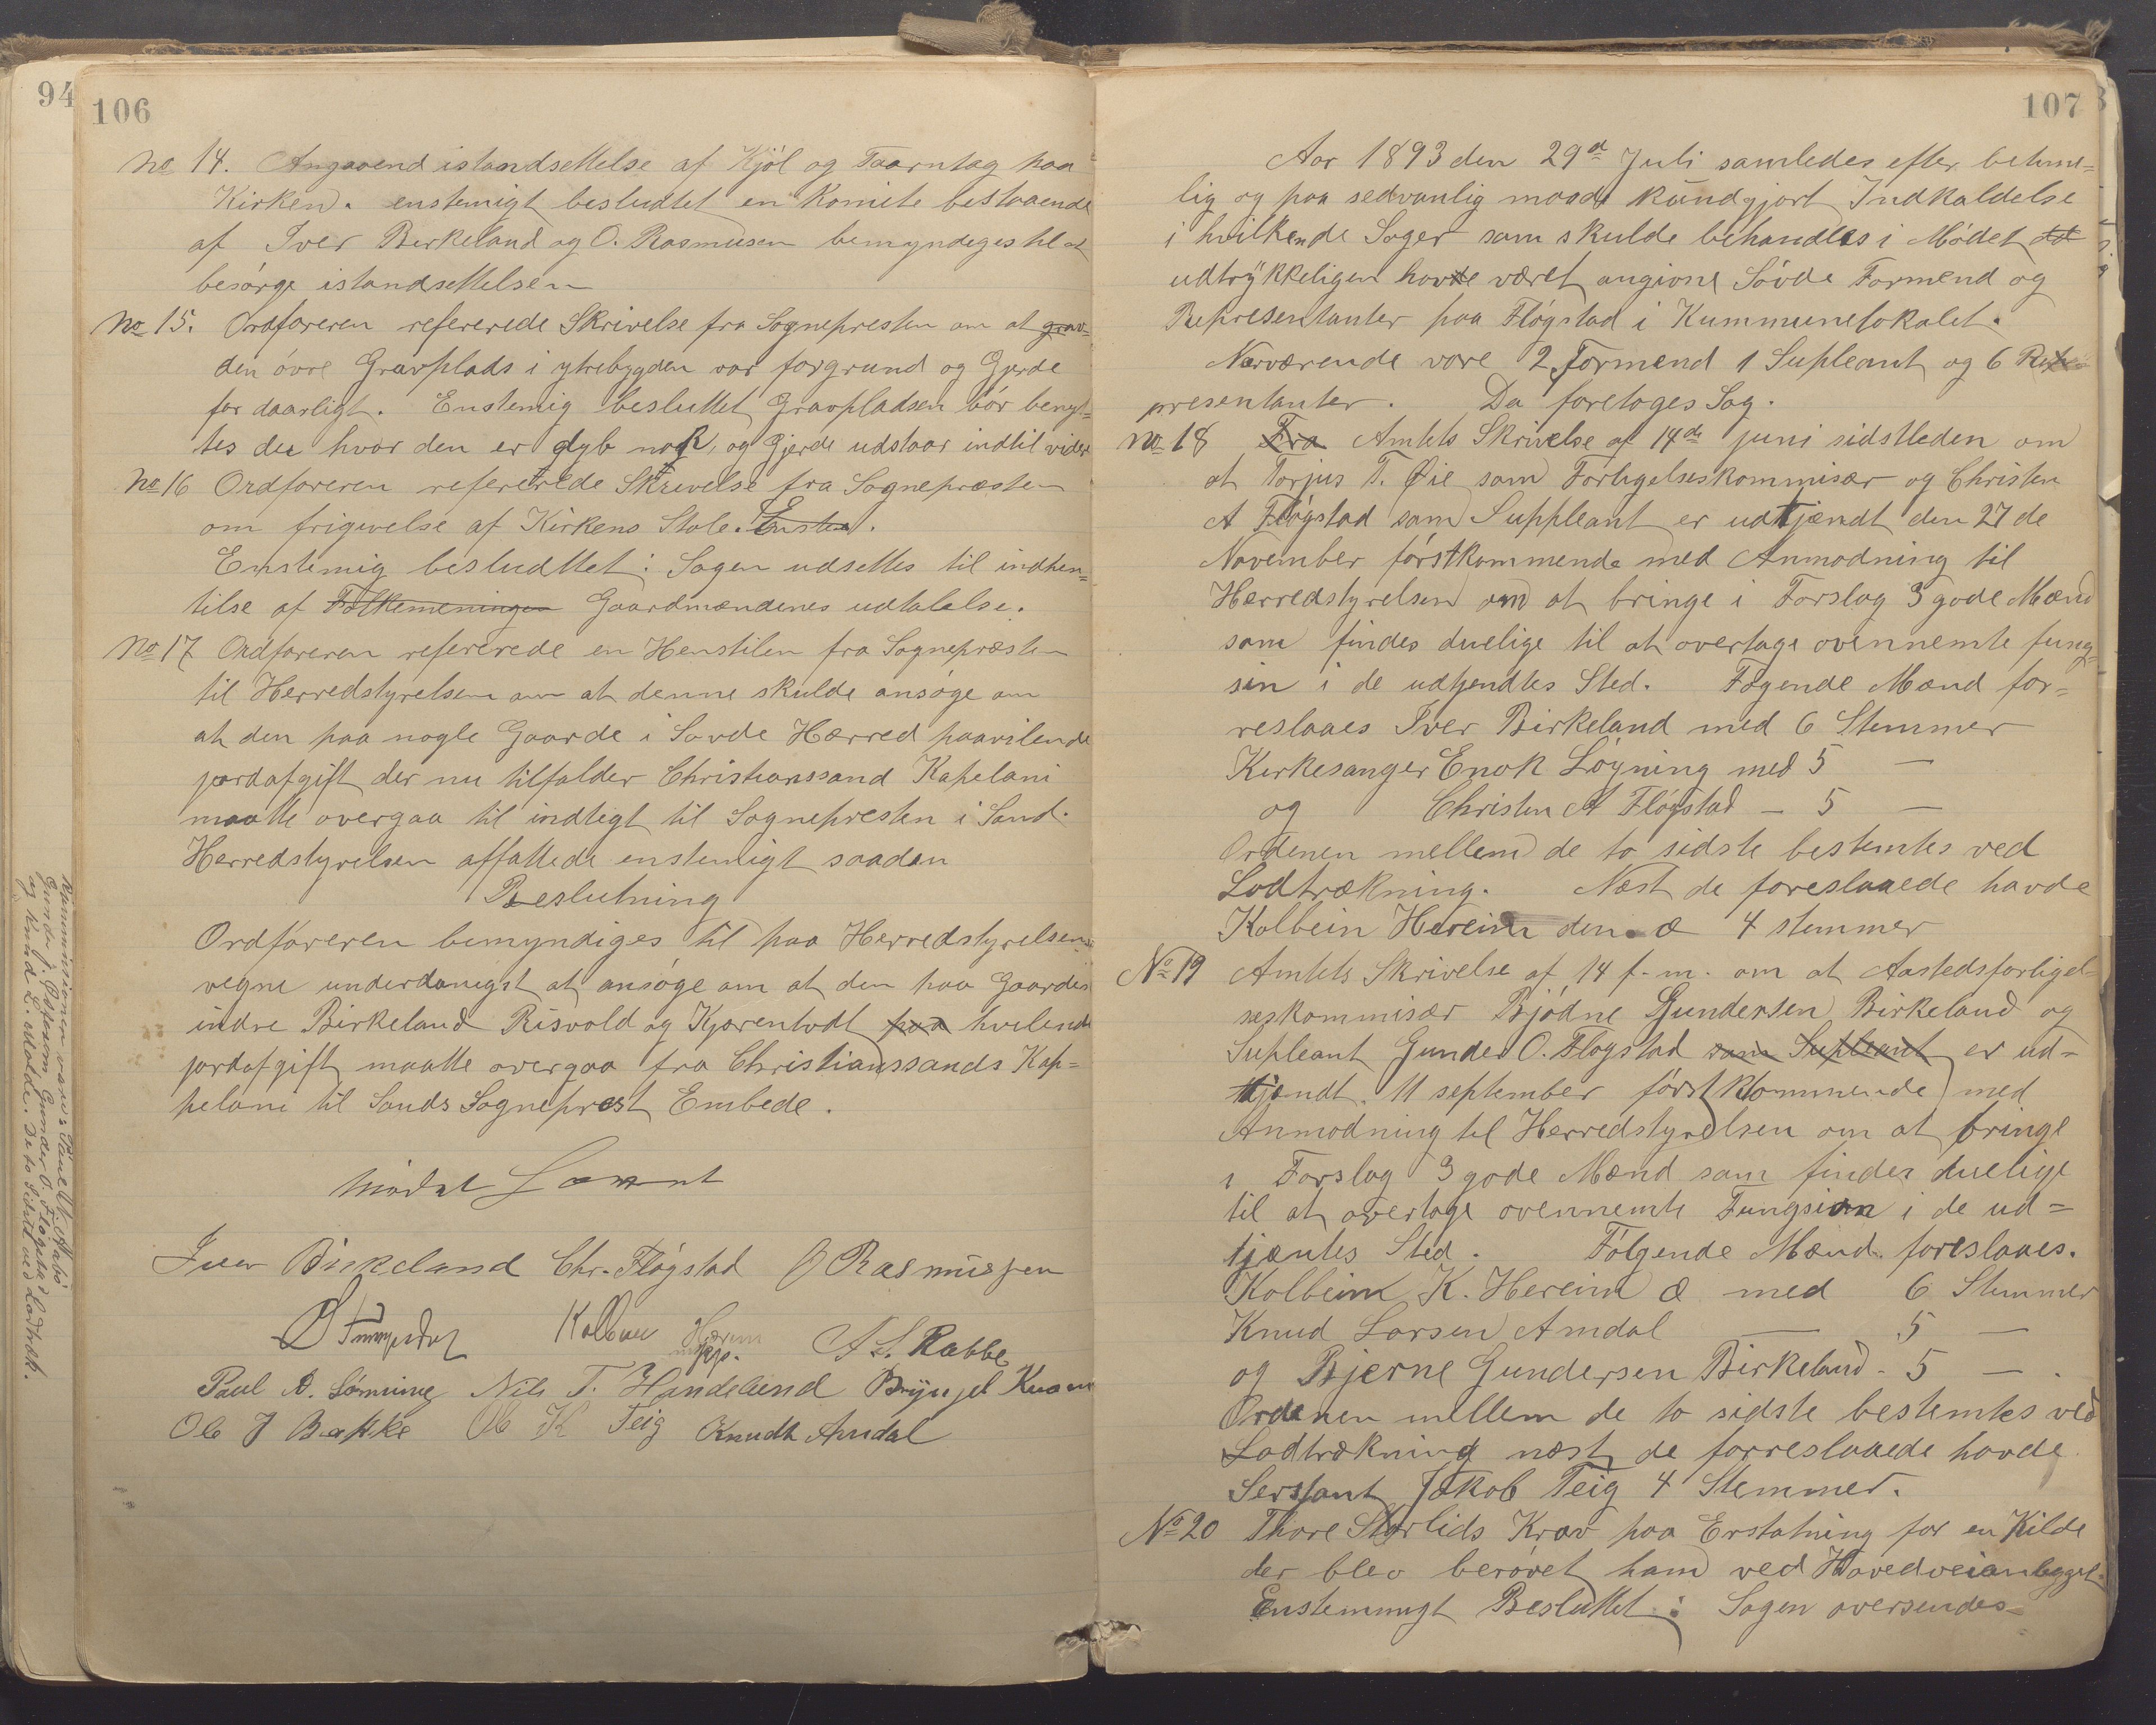 94
106
No 14. Angaaend istandsettelse af Kjöl og Taarntag paa
Kirken. enstemigt besludtet en Komite bestaaende
af Iver Birkeland og O. Rasmusen bemyndiges til at
besörge istandsettelsen
No 15. Ordföreren refererede Skrivelse fra Sognepresten om at grav-
den övre Gravplads i ytrebygden var forgrund og Gjerde
for daarligt. Enstemig besluttet Gravpladsen bör benyt=
tes der hvor den er dyb nok, og Gjerde udstaar indtil videre
No 16 Ordföreren refererede Skrivelse fra Sognepræsten
om frigivelse af Kirkens Stole. Enstem.
Enstemig besludttet: Sagen udsettes til indhen=
tilse af Folkemeningen Gaardmændenes udtalelse.
No 17 Ordföreren refererede en Henstilen fra Sognepræsten
til Herredstyrelsen om at denne skulde ansöge om
at den paa nogle Gaarde i Savde Hærred paavilende
jordafgift der nu tilfalder Christianssand Kapelani
maatte overgaa til indtegt til Sognepresten i Sand.
Herredstyrelsen affattede enstemigt saadan
Beslutning
Ordföreren bemyndiges til paa Herredstyrelsens
vegne underdanigst at ansöge om at den paa Gaardes
indre Birkeland Risvold og Kjærentvdt paa hvilende
jordafgift maatte overgaa fra Christianssands Kap=
pelani til Sands Sogneprest Embede.
Mödet Hævet
Iver Birkeland Chr. Flögstad O Rasmussen
Kolbein Hæreim
mpp. A. L. Rabbe
Paul A. Lönning Nils T. Handeland Bryngel Kvam
Ole J Bakke Ole K Teig Knudt Amdal
Kommissionen
Gunder J. Östersen Gunder O. Flögstad
og Knud L. Molde. De to Sidste ved Lodtræk.
107
Aar 1893 den 29d Juli samledes efter betime=
lig og paa sedvanlig maade kundgjort Indkaldelse
i hvilkende Sager som skulde behandles i Mödet det
udtrykkeligen havde været angivne Sövde Formend og
Representanter paa Flögstad i Kummunelokalet.
Nærværende vare 2 Formend 1 Supleant og 6 Re
presentanter. Da foretoges Sag.
No 18 Fra Amtets Skrivelse af 14de juni sidstleden om
at Torjus T. Øie som Forligelseskommisær og Christen
A Flögstad som Suppleant er udtjændt den 27 de
November förstkommende med Anmodning til
Herredstyrelsen om at bringe i Forslag 3 gode Mænd
som findes duelige til at overtage ovennemte fung=
sin i de udtjendtes Sted. Føgende Mænd for=
reslaaes Iver Birkeland med 6 Stemmer
Kirkesanger Enok Löyning med 5 —
og Christen A Flögstad — 5 —
Ordenen mellem de to sidste bestemtes ved
Lodtrækning. Næst de foreslaaede havde
Kolbein Hereim den æ 4 stemmer
No 19 Amtets Skrivelse af 14 f. m. om at Aastedsforligel-
seskommisær Bjödne Gundersen Birkeland og
Supleant Gunder O. Flogstad som Supleant er ud=
tjændt 11 september förstkommende med
Anmodning til Herredstyrelsen om at bringe
i Forslag 3 gode Mænd som findes duelige
til at overtage ovennemte Fungsion i de ud=
tjæntes Sted. Fölgende Mænd foreslaaes.
Kolbein K. Hereim æ med 6 Stemmer
Knud Larsen Amdal — 5 —
og Bjerne Gundersen Birkeland - 5 —.
Ordenen mellem de to sidste bestemtes ved
Lodtrækning næst de forreslaaede havde
Sersjant Jakob Teig 4 Stemmer.
No 20 Thore Storlids Krav paa Erstatning for en Kilde
der blev berövet ham ved Hovedveianlegget
Enstemmigt Besluttet: Sagen oversendes